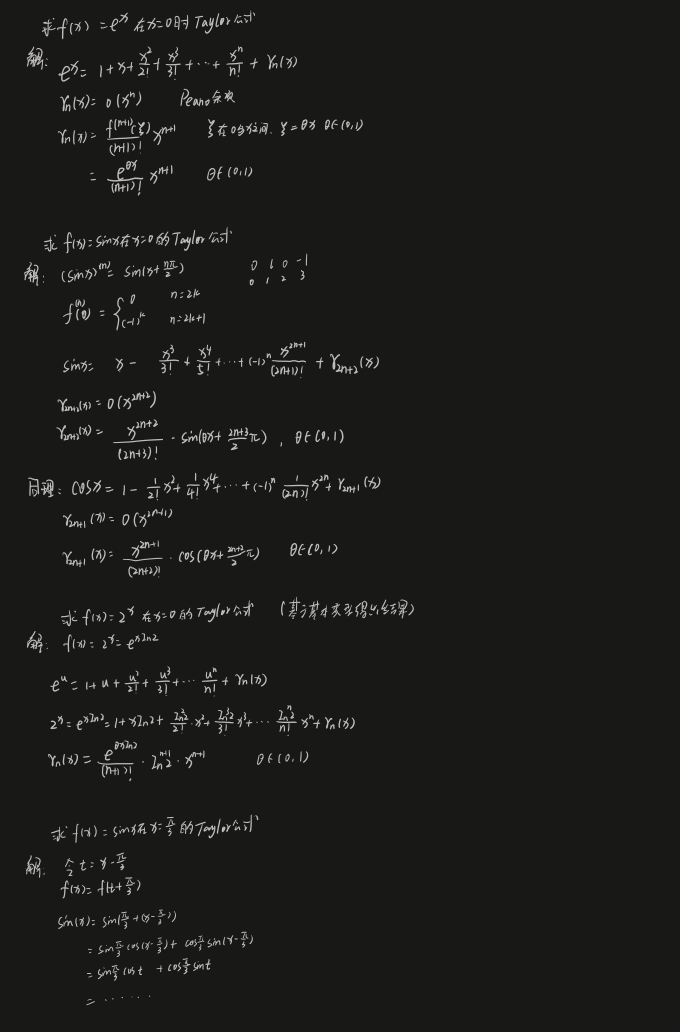 求 f(x) = e^x 在 x=0 时 Taylor 公式
解: e^x = 1 + x + x^2/2! + x^3/3! + ⋯ + x^n/n! + r_n(x)
r_n(x) = o(x^n) Peano 余项
r_n(x) = f^(n+1)(ξ)/(n+1)! x^(n+1) ξ 在 0 与 x 之间. ξ = θx θ∈(0,1)
= e^(θx)/(n+1)! x^(n+1) θ∈(0,1)
求 f(x) = sinx 在 x=0 的 Taylor 公式
解: (sinx)^(n) = sin(x + nπ/2) 0 1 0 -1
0 1 2 3
f^(n)(0) = { 0 n=2k
(-1)^k n=2k+1
sinx = x - x^3/3! + x^4/5! + ⋯ + (-1)^n x^(2n+1)/(2n+1)! + r_(2n+2)(x)
r_(2n+2)(x) = o(x^(2n+2))
r_(2n+2)(x) = x^(2n+2)/(2n+3)! · sin(θx + (2n+3)/2 π), θ∈(0,1)
同理: cosx = 1 - 1/2! x^2 + 1/4! x^4 + ⋯ + (-1)^n 1/(2n)! x^(2n) + r_(2n+1)(x)
r_(2n+1)(x) = o(x^(2n+1))
r_(2n+1)(x) = x^(2n+1)/(2n+2)! · cos(θx + (2n+2)/2 π) θ∈(0,1)
求 f(x) = 2^x 在 x=0 的 Taylor 公式 (基于基本 得出结果)
解: f(x) = 2^x = e^(xln2)
e^u = 1 + u + u^2/2! + u^3/3! + ⋯ u^n/n! + r_n(x)
2^x = e^(xln2) = 1 + xln2 + ln^2 2/2! · x^2 + ln^3 2/3! x^3 + ⋯ ln^n 2/n! x^n + r_n(x)
r_n(x) = e^(θxln2)/(n+1)! · ln^(n+1) 2 · x^(n+1) θ∈(0,1)
求 f(x) = sinx 在 x = π/3 的 Taylor 公式
解. 令 t = x - π/3
f(x) = f(t + π/3)
sin(x) = sin(π/3 + (x - π/3))
= sin π/3 cos(x - π/3) + cos π/3 sin(x - π/3)
= sin π/3 cos t + cos π/3 sin t
= ⋯⋯